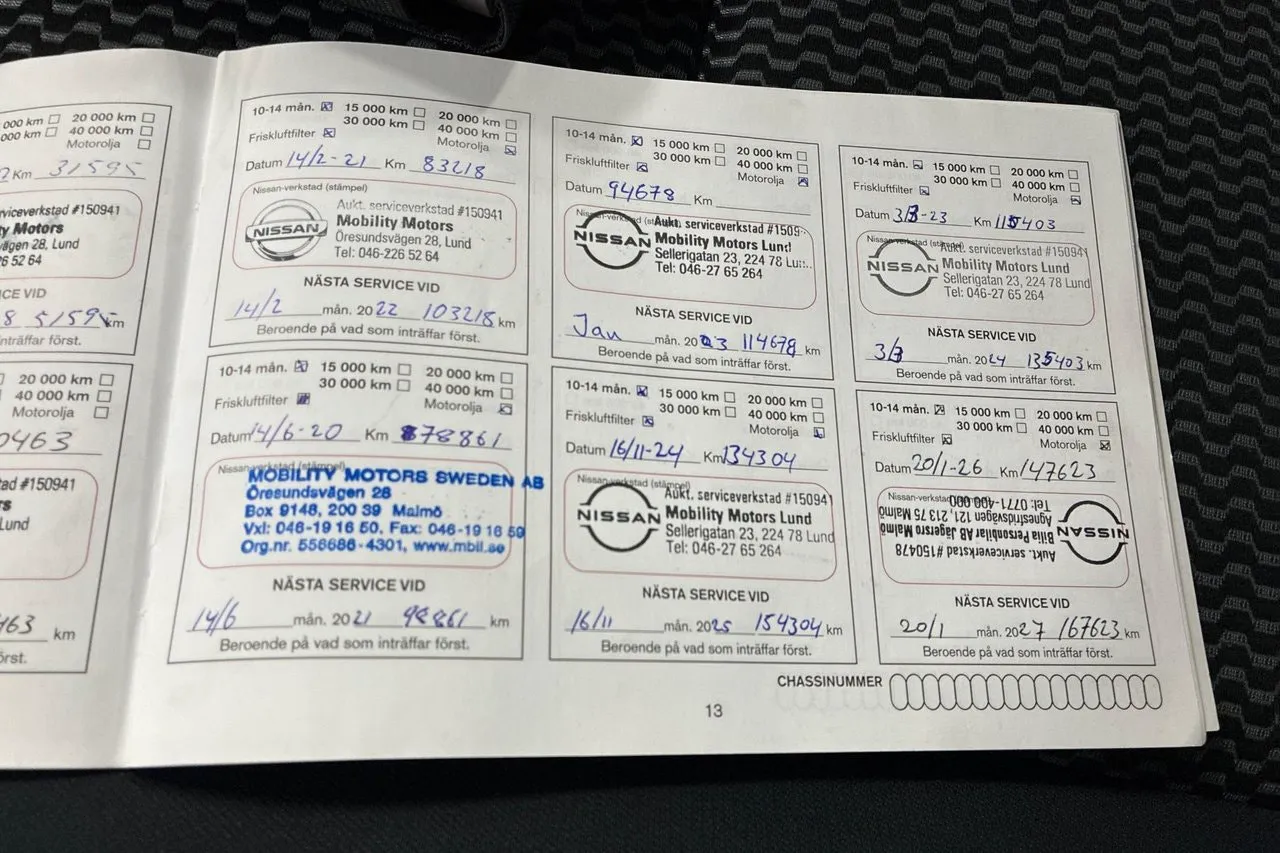 000 km 20 000 km
000 km 40 000 km
Motorolja
Km 31595
rviceverkstad #150941
y Motors
ägen 28, Lund
26 52 64
ICE VID
8 51595 km
nträffar först.
20 000 km
40 000 km
Motorolja
0463
tad #150941
rs
Lund
463 km
örst.
10-14 mån. 15 000 km 20 000 km
30 000 km 40 000 km
Friskluftfilter Motorolja
Datum 14/2-21 Km 83218
Nissan-verkstad (stämpel)
Aukt. serviceverkstad #150941
NISSAN Mobility Motors
Öresundsvägen 28, Lund
Tel: 046-226 52 64
NÄSTA SERVICE VID
14/2 mån. 2022 103218 km
Beroende på vad som inträffar först.
10-14 mån. 15 000 km 20 000 km
30 000 km 40 000 km
Friskluftfilter Motorolja
Datum 14/6-20 Km 78861
Nissan-verkstad (stämpel)
MOBILITY MOTORS SWEDEN AB
Öresundsvägen 28
Box 9148, 200 39 Malmö
Vxl: 046-19 16 50, Fax: 046-19 16 59
Org.nr. 556686-4301, www.mbil.se
NÄSTA SERVICE VID
14/6 mån. 2021 98861 km
Beroende på vad som inträffar först.
10-14 mån. 15 000 km 20 000 km
30 000 km 40 000 km
Friskluftfilter Motorolja
Datum 94678 Km
Nissan-verkstad (stämpel)
Aukt. serviceverkstad #1509
NISSAN Mobility Motors Lund
Sellerigatan 23, 224 78 Lu
Tel: 046-27 65 264
NÄSTA SERVICE VID
Jan mån. 2023 114678 km
Beroende på vad som inträffar först.
10-14 mån. 15 000 km 20 000 km
30 000 km 40 000 km
Friskluftfilter Motorolja
Datum 16/11-24 Km 134304
Nissan-verkstad (stämpel)
Aukt. serviceverkstad #150941
NISSAN Mobility Motors Lund
Sellerigatan 23, 224 78 Lund
Tel: 046-27 65 264
NÄSTA SERVICE VID
16/11 mån. 2025 154304 km
Beroende på vad som inträffar först.
10-14 mån. 15 000 km 20 000 km
30 000 km 40 000 km
Friskluftfilter Motorolja
Datum 3/3-23 Km 115403
Nissan-verkstad (stämpel)
Aukt. serviceverkstad #150941
NISSAN Mobility Motors Lund
Sellerigatan 23, 224 78 Lund
Tel: 046-27 65 264
NÄSTA SERVICE VID
3/3 mån. 2024 135403 km
Beroende på vad som inträffar först.
10-14 mån. 15 000 km 20 000 km
30 000 km 40 000 km
Friskluftfilter Motorolja
Datum 20/1-26 Km 147623
Nissan-verkstad
Aukt. serviceverkstad #150478
NISSAN Bilia Personbilar AB Jägersro Malmö
Agnesfridsvägen 121, 213 75 Malmö
Tel: 0771-400 000
NÄSTA SERVICE VID
20/1 mån. 2027 167623 km
Beroende på vad som inträffar först.
CHASSINUMMER
13